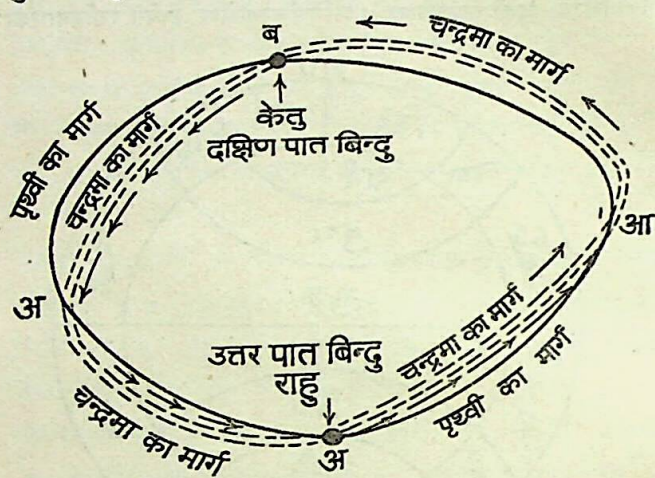 चन्द्रमा का मार्ग
ब
केतु
दक्षिण पात बिन्दु
पृथ्वी का मार्ग
चन्द्रमा का मार्ग
आ
अ
उत्तर पात बिन्दु
राहु
चन्द्रमा का मार्ग
पृथ्वी का मार्ग
चन्द्रमा का मार्ग
अ